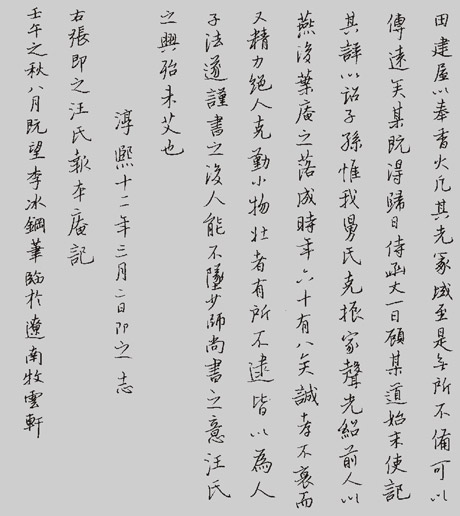 田建屋以奉香火凡其先冢域至是無所不備可以
傳遠矣某既得歸日侍函丈一日顧某道始末使記
其詳以詔子孫惟我舅氏克振家聲光紹前人以
燕後葉庵之落成時年六十有八矣誠孝不衰而
又精力絕人克勤小物壯者有所不逮皆以為人
子法遂謹書之後人能不墜少師尚書之意汪氏
之興殆未艾也
淳熙十二年三月二日即之志
右張即之汪氏報本庵記
壬午之秋八月既望李冰鋼筆臨於遼南牧雲軒